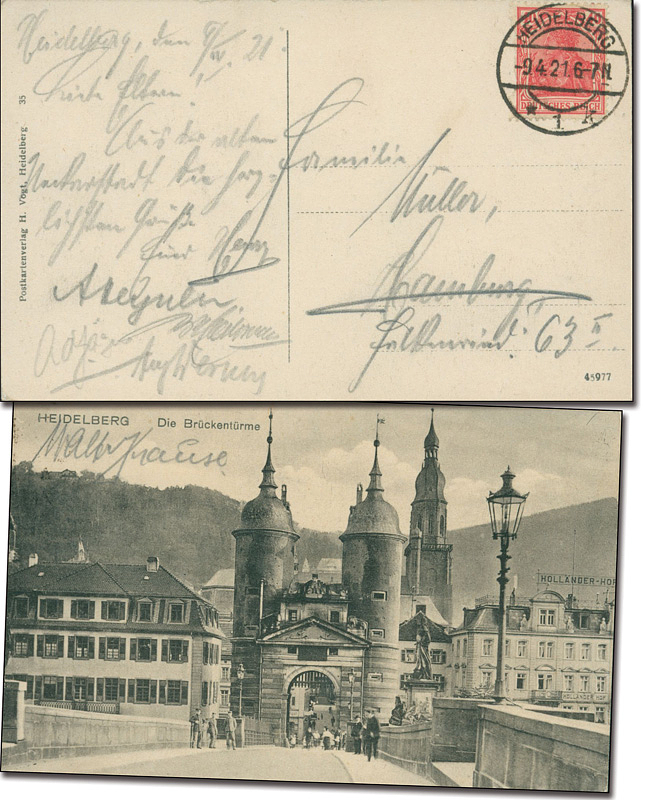 Heidelberg, den 8/IV. 21.
Liebe Eltern!
Aus der alten
Neckarstadt die herz-
lichsten Grüße
Euer
Familie
Müller,
Hamburg,
63 II.
HEIDELBERG
-9.4.21.6-7N.
* 1. K
DEUTSCHES REICH
Postkartenverlag H. Vogt, Heidelberg 35
45977
HEIDELBERG Die Brückentürme
Walter Krause
HOLLÄNDER-HOF
HOLLÄNDER HOF